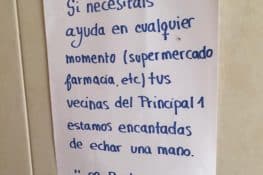 Si necesitáis
ayuda en cualquier
momento (supermercado
farmacia, etc) tus
vecinas del Principal 1
estamos encantadas
de echar una mano.